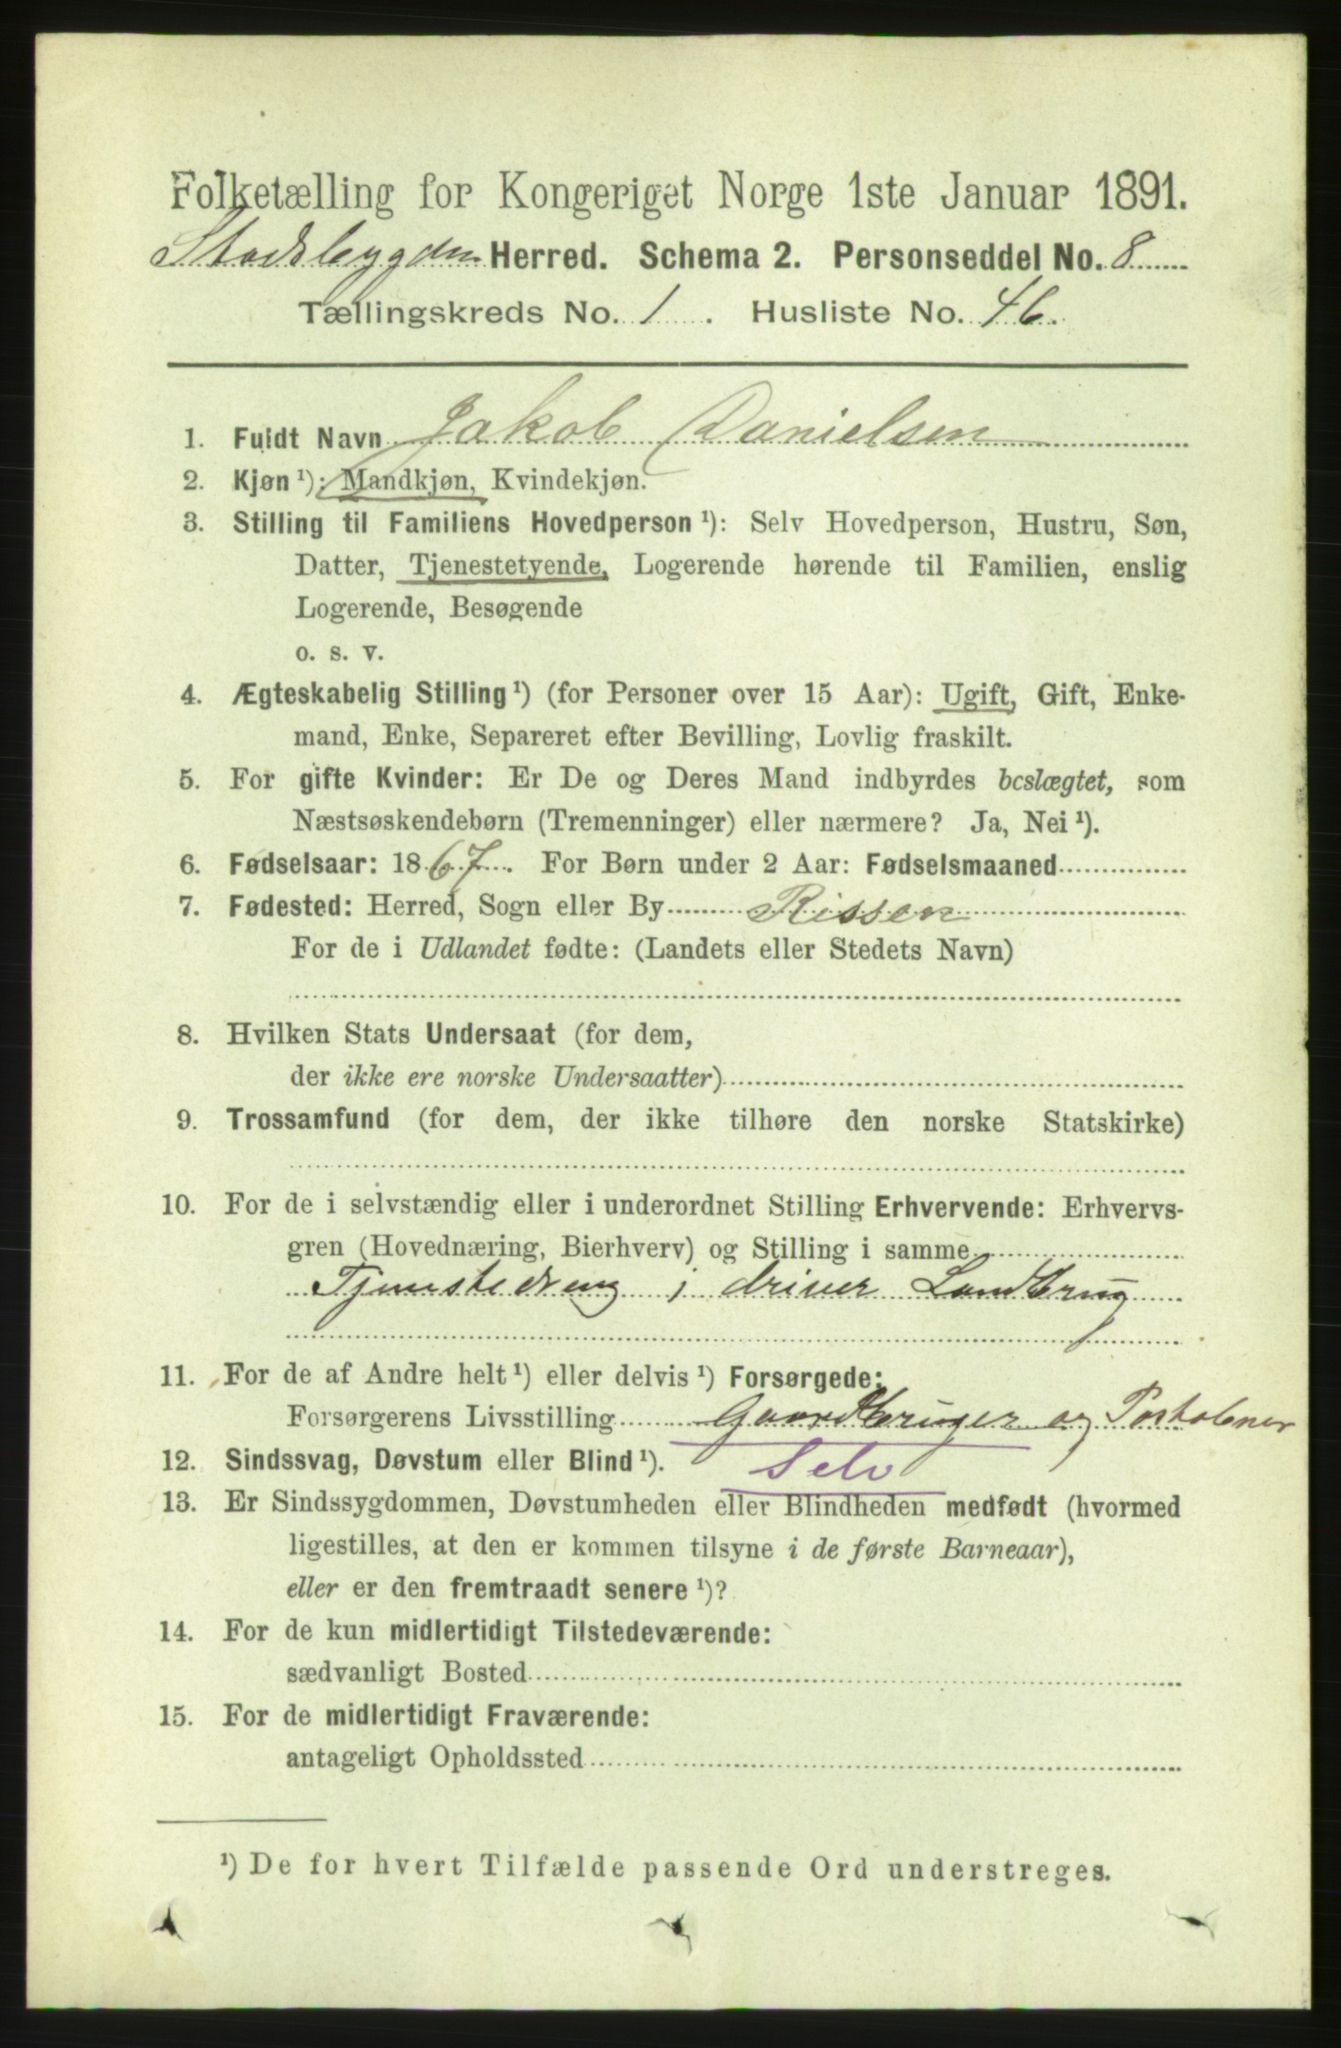 Folketælling for Kongeriget Norge 1ste Januar 1891.
Stadsbygden Herred. Schema 2. Personseddel No. 8
Tællingskreds No. 1. Husliste No. 46.
1. Fuldt Navn Jakob Danielsen
2. Kjøn ¹): Mandkjøn, Kvindekjøn.
3. Stilling til Familiens Hovedperson ¹): Selv Hovedperson, Hustru, Søn,
Datter, Tjenestetyende, Logerende hørende til Familien, enslig
Logerende, Besøgende
o. s. v.
4. Ægteskabelig Stilling ¹) (for Personer over 15 Aar): Ugift, Gift, Enke-
mand, Enke, Separeret efter Bevilling, Lovlig fraskilt.
5. For gifte Kvinder: Er De og Deres Mand indbyrdes beslægtet, som
Næstsøskendebørn (Tremenninger) eller nærmere? Ja, Nei ¹).
6. Fødselsaar: 1867. For Børn under 2 Aar: Fødselsmaaned
7. Fødested: Herred, Sogn eller By Rissen
For de i Udlandet fødte: (Landets eller Stedets Navn)
8. Hvilken Stats Undersaat (for dem,
der ikke ere norske Undersaatter)
9. Trossamfund (for dem, der ikke tilhøre den norske Statskirke)
10. For de i selvstændig eller i underordnet Stilling Erhvervende: Erhvervs-
gren (Hovednæring, Bierhverv) og Stilling i samme
Tjenestedreng i driver Landbrug
11. For de af Andre helt ¹) eller delvis ¹) Forsørgede:
Forsørgerens Livsstilling Gaardbruger og Postaabner
12. Sindssvag, Døvstum eller Blind ¹). Selv
13. Er Sindssygdommen, Døvstumheden eller Blindheden medfødt (hvormed
ligestilles, at den er kommen tilsyne i de første Barneaar),
eller er den fremtraadt senere ¹)?
14. For de kun midlertidigt Tilstedeværende:
sædvanligt Bosted
15. For de midlertidigt Fraværende:
antageligt Opholdssted
¹) De for hvert Tilfælde passende Ord understreges.